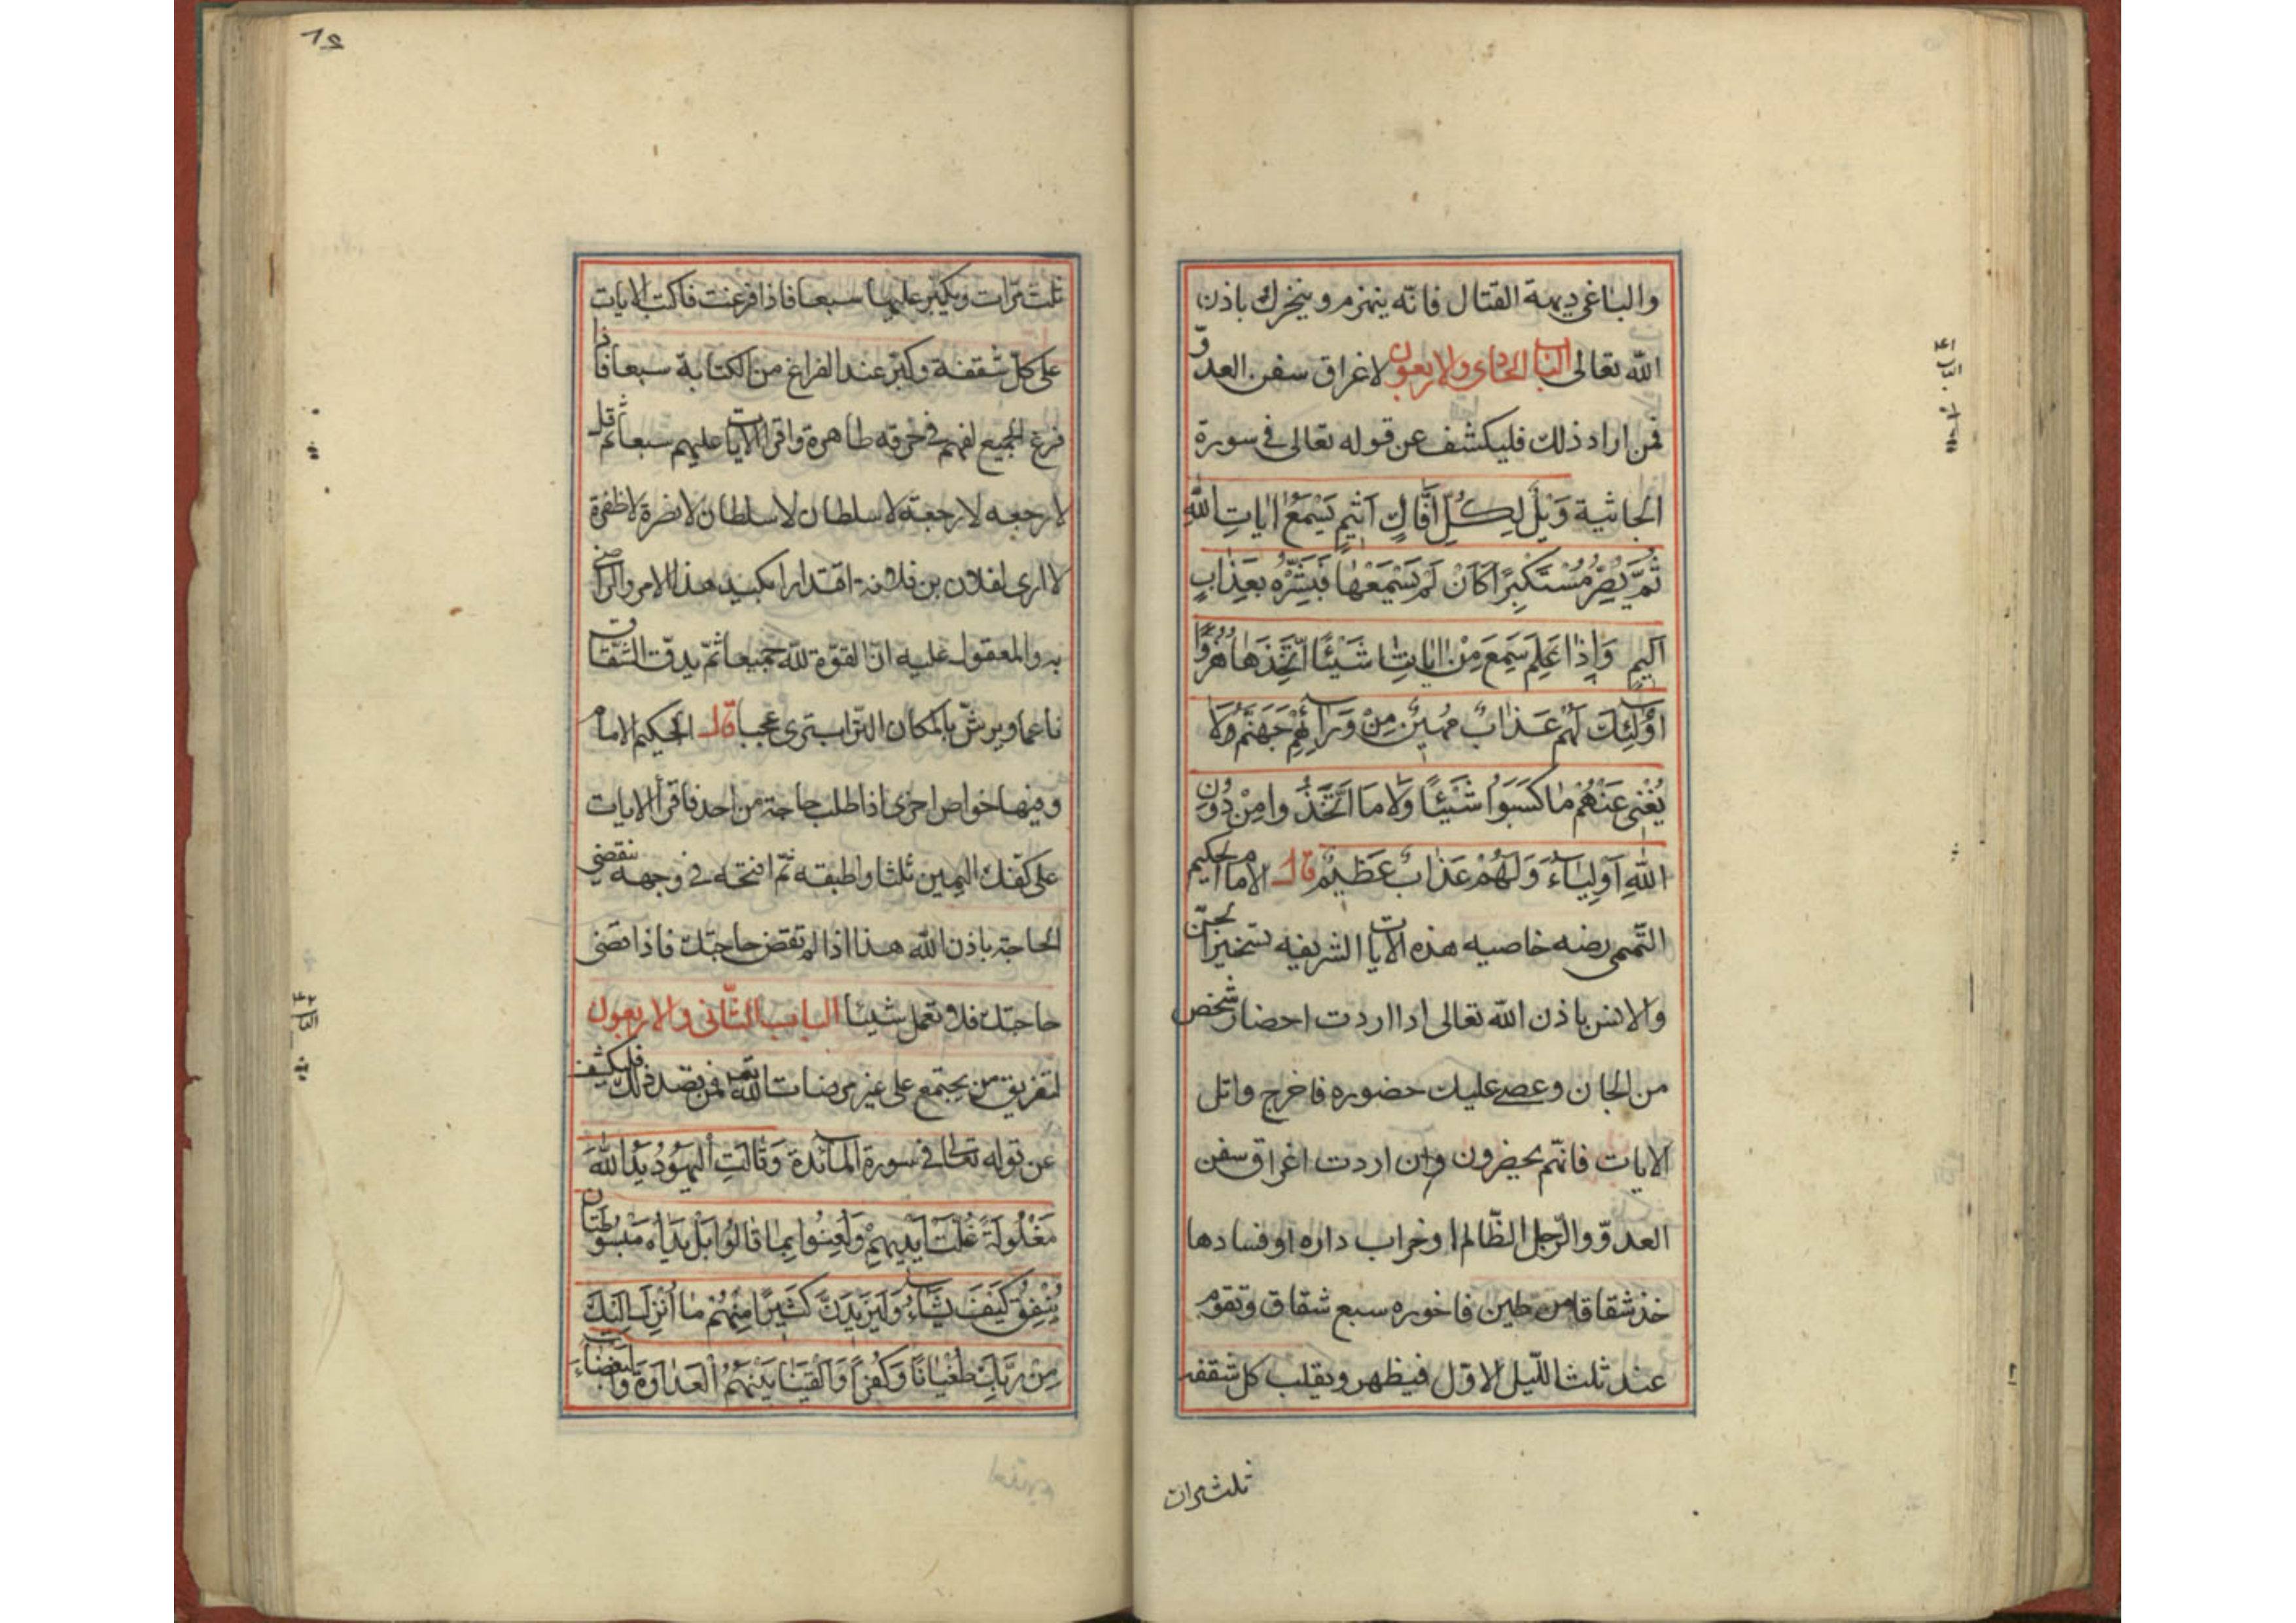 والباغي ديمة القتال فانّه ينهزم وينخرك باذن
الله تعالى الباب الحادى والاربعون لاغراق سفن العدوّ
فمن اراد ذلك فليكشف عن قوله تعالى فى سورة
الجاثية وَيْلٌ لِكُلِّ اَفَّاكٍ اَثِيمٍ يَسْمَعُ اٰيَاتِ اللّٰهِ
ثُمَّ يُصِرُّ مُسْتَكْبِرًا كَاَنْ لَمْ يَسْمَعْهَا فَبَشِّرْهُ بِعَذَابٍ
اَلِيمٍ وَاِذَا عَلِمَ سَمِعَ مِنْ اٰيَاتِنَا شَيْئًا اتَّخَذَهَا هُزُوًا
اُولٰئِكَ لَهُمْ عَذَابٌ مُهِينٌ مِنْ وَرَآئِهِمْ جَهَنَّمُ وَلَا
يُغْنِى عَنْهُمْ مَا كَسَبُوا شَيْئًا وَلَا مَا اتَّخَذُوا مِنْ دُونِ
اللّٰهِ اَوْلِيَآءَ وَلَهُمْ عَذَابٌ عَظِيمٌ قال الامام الحكيم
التّميمى رضه خاصيه هذه الايات الشريفه تسخير الجنّ
والانس باذن الله تعالى اذا اردت احضار شخص
من الجان وعصى عليك حضوره فاخرج واتل
الايات فانّهم يحضرون وان اردت اغراق سفن
العدوّ والرّجل الظّالم او خراب داره او فسادها
خذ شقاقا من طين فاخوره سبع شقاق وتقوم
عند ثلث اللّيل الاوّل فيظهر وتقلب كل شقفه
ثلث مرات
٨٤
ثلث مرّات ويكبّر عليها سبعا فاذا فرغت فاكتب الايات
على كلّ شقفة وكبّر عند الفراغ من الكتابة سبعا فاذا
فرغ الجميع لفهم فى خرقه طاهرة واقرا الايات عليهم سبعا ثم قل
لا رجعه لا رجعة لا سلطان لا سلطان لا نصرة لا ظفرة
لا ارى لفلان بن فلانة اقتدارا بكيد هذا الامر والراضى
به والمعقول عليه انّ القوّة لله جميعا ثمّ يدقّ الشّقاق
ناعما ويرشّ بالمكان التراب ترى عجبا قال الحكيم الامام
ومنها خواص اخرى اذا طلب حاجة من احد فاقرا الايات
على كفّك اليمين ثلثا واطبقه ثمّ افتحه فى وجهه تنقضى
الحاجة باذن الله هذا اذا لم تقض حاجتك فاذا قضى
حاجتك فلا تعمل شيئا الباب الثّانى والاربعون
لتفريق من يجتمع على غير مرضات الله تعم فمن قصد ذلك فليكشف
عن قوله تعالى فى سورة المآئدة وَقَالَتِ الْيَهُودُ يَدُ اللّٰهِ
مَغْلُولَةٌ غُلَّتْ اَيْدِيهِمْ وَلُعِنُوا بِمَا قَالُوا بَلْ يَدَاهُ مَبْسُوطَتَانِ
يُنْفِقُ كَيْفَ يَشَآءُ وَلَيَزِيدَنَّ كَثِيرًا مِنْهُمْ مَا اُنْزِلَ اِلَيْكَ
مِنْ رَبِّكَ طُغْيَانًا وَكُفْرًا وَاَلْقَيْنَا بَيْنَهُمُ الْعَدَاوَةَ وَالْبَغْضَآءَ